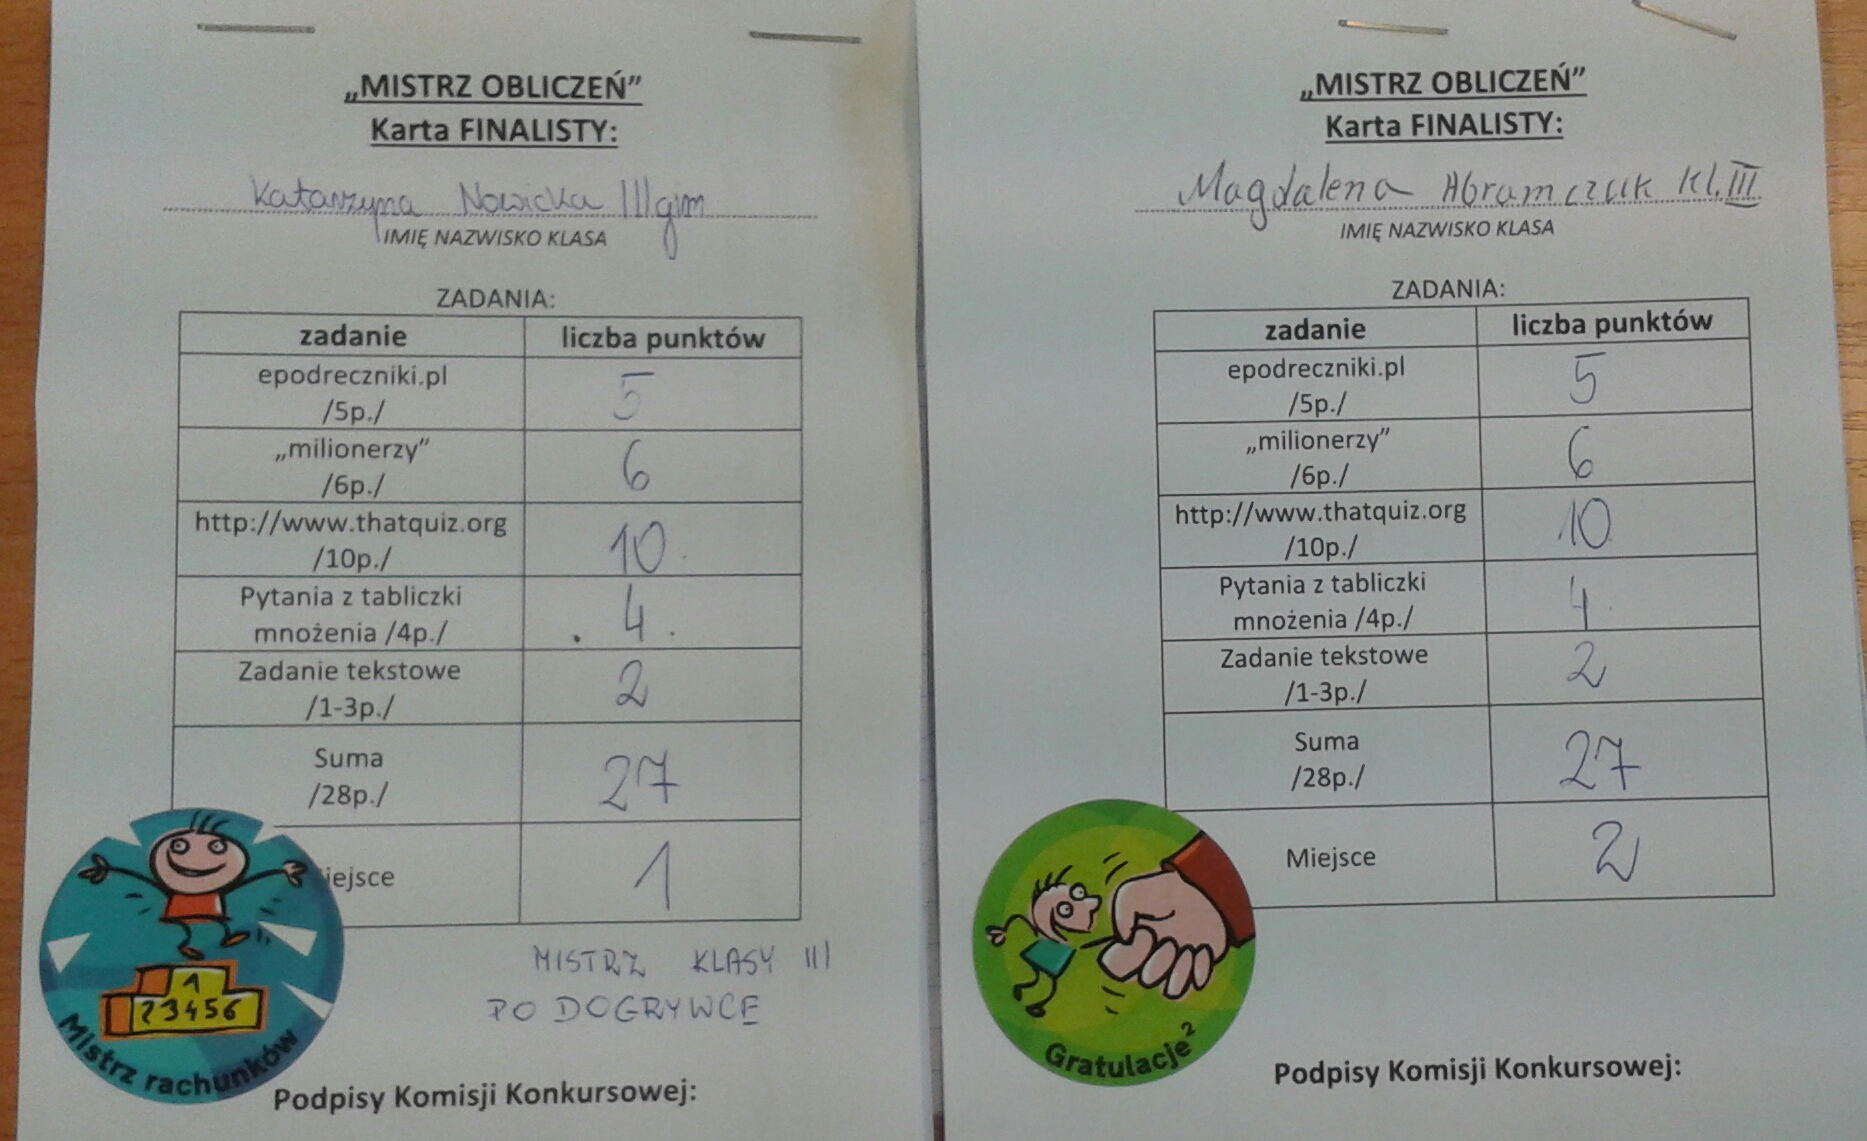 „MISTRZ OBLICZEŃ”
Karta FINALISTY:
Katarzyna Nowicka III gim
IMIĘ NAZWISKO KLASA
ZADANIA:
zadanie liczba punktów
epodreczniki.pl
/5p./ 5
„milionerzy”
/6p./ 6
http://www.thatquiz.org
/10p./ 10
Pytania z tabliczki
mnożenia /4p./ 4
Zadanie tekstowe
/1-3p./ 2
Suma
/28p./ 27
iejsce 1
MISTRZ KLASY III
PO DOGRYWCE
1
23456
Mistrz rachunków
Podpisy Komisji Konkursowej:
„MISTRZ OBLICZEŃ”
Karta FINALISTY:
Magdalena Abramczuk kl. III
IMIĘ NAZWISKO KLASA
ZADANIA:
zadanie liczba punktów
epodreczniki.pl
/5p./ 5
„milionerzy”
/6p./ 6
http://www.thatquiz.org
/10p./ 10
Pytania z tabliczki
mnożenia /4p./ 4
Zadanie tekstowe
/1-3p./ 2
Suma
/28p./ 27
Miejsce 2
Gratulacje²
Podpisy Komisji Konkursowej: